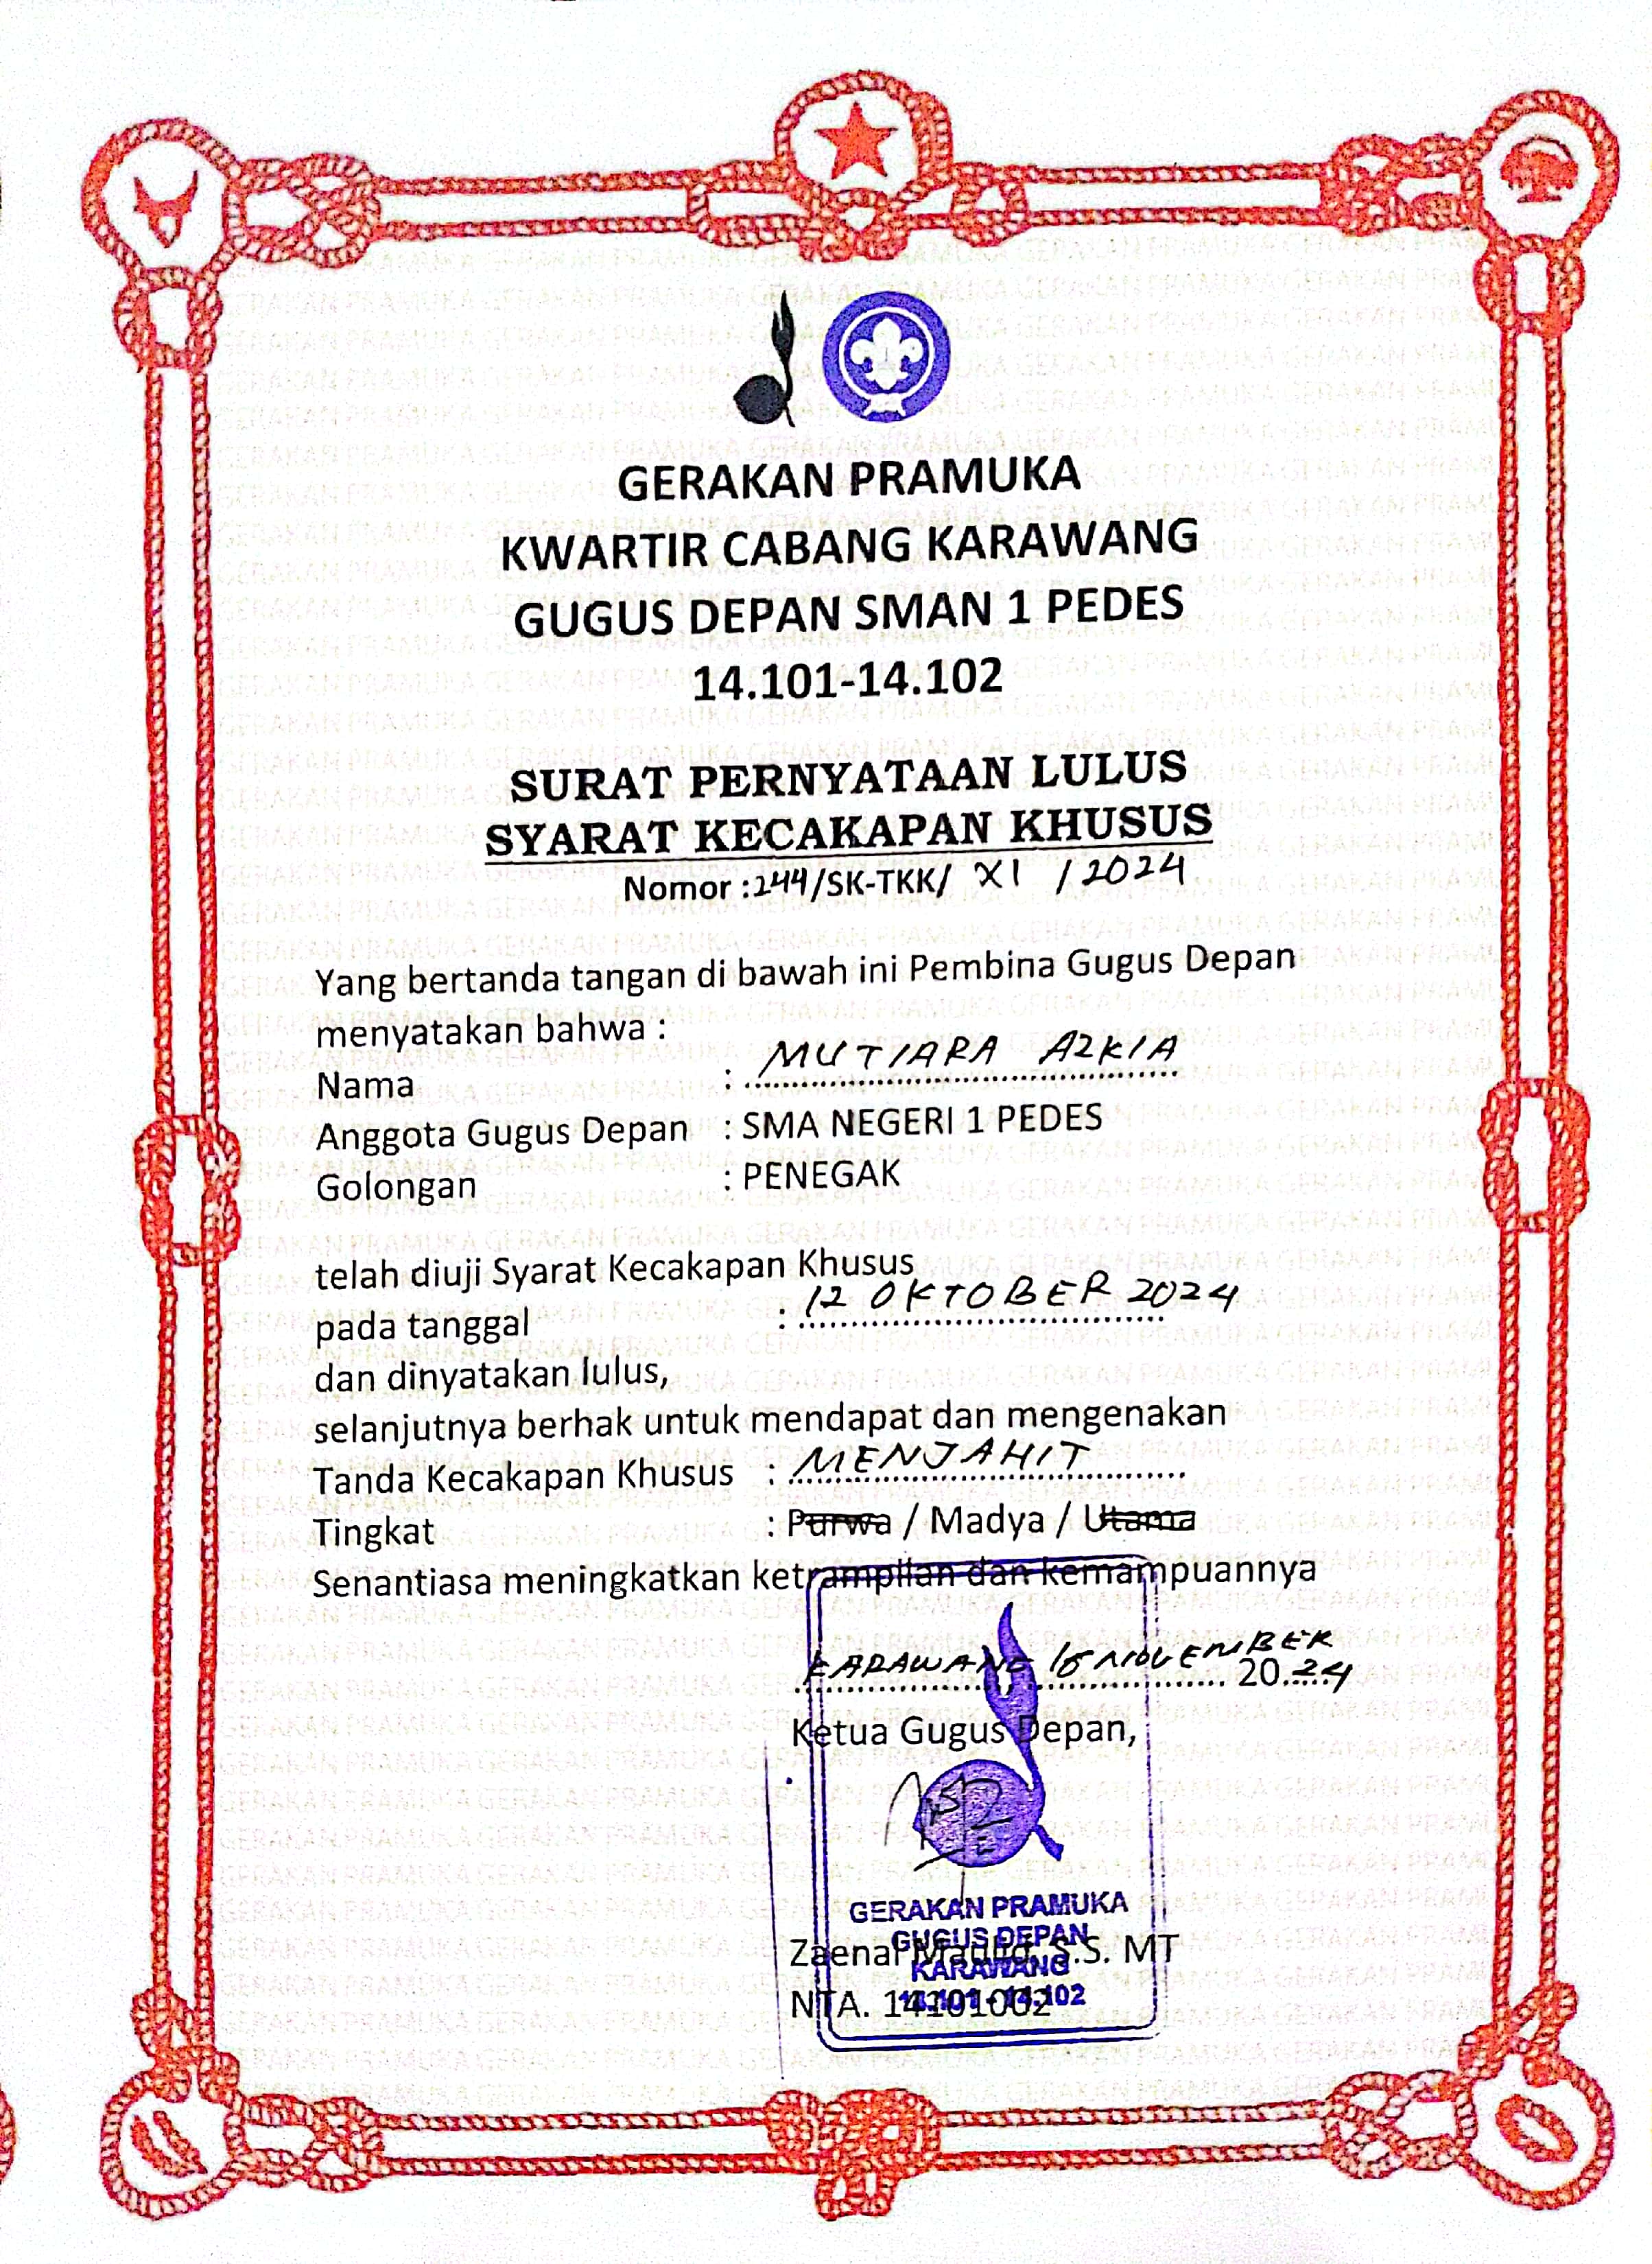 GERAKAN PRAMUKA
KWARTIR CABANG KARAWANG
GUGUS DEPAN SMAN 1 PEDES
14.101-14.102
SURAT PERNYATAAN LULUS
SYARAT KECAKAPAN KHUSUS
Nomor : 244/SK-TKK/ XI / 2024
Yang bertanda tangan di bawah ini Pembina Gugus Depan
menyatakan bahwa :
Nama : MUTIARA AZKIA
Anggota Gugus Depan : SMA NEGERI 1 PEDES
Golongan : PENEGAK
telah diuji Syarat Kecakapan Khusus
pada tanggal : 12 OKTOBER 2024
dan dinyatakan lulus,
selanjutnya berhak untuk mendapat dan mengenakan
Tanda Kecakapan Khusus : MENJAHIT
Tingkat : Purwa / Madya / Utama
Senantiasa meningkatkan ketrampilan dan kemampuannya
KARAWANG NOVEMBER 2024
Ketua Gugus Depan,
GERAKAN PRAMUKA
GUGUS DEPAN
KARAWANG
14.101 - 14.102
Zaenal S.S. MT
NTA. 14101002